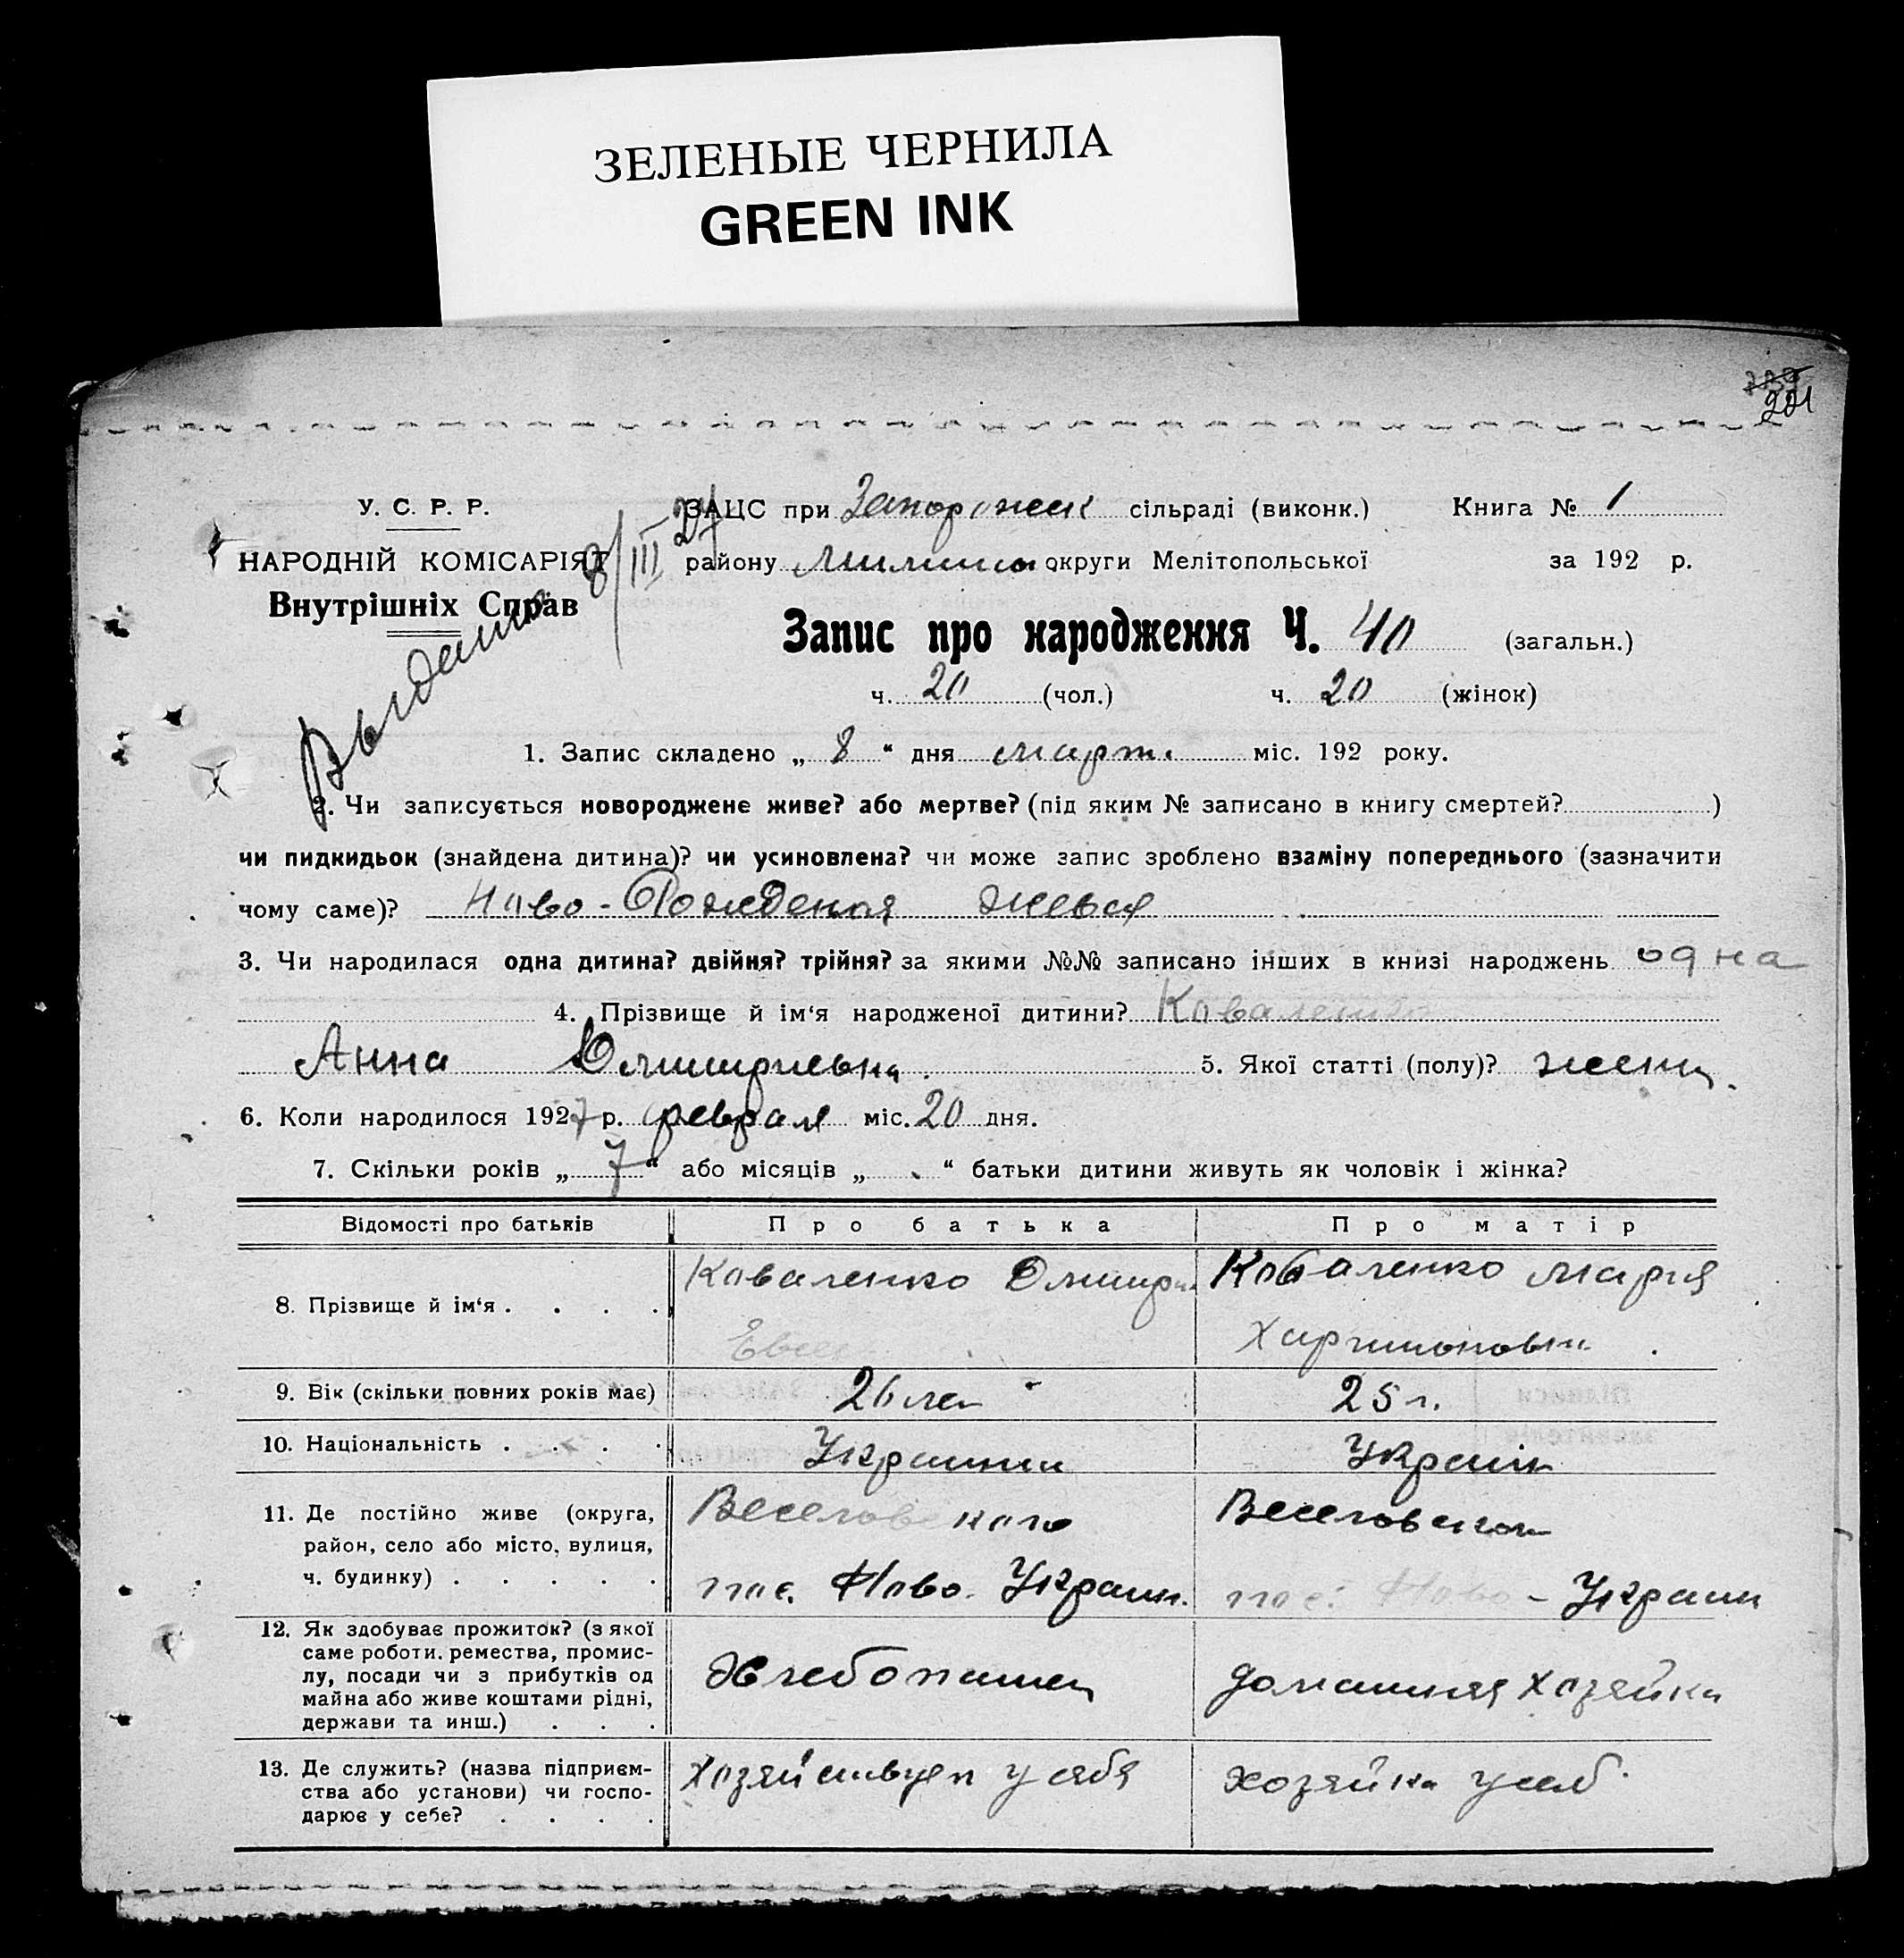 ЗЕЛЕНЫЕ ЧЕРНИЛА
GREEN INK
201
У. С. Р. Р.
НАРОДНІЙ КОМІСАРІЯТ
Внутрішніх Справ
8/III 27
ЗАЦС при Запорожск сільраді (виконк.) Книга № 1
району округи Мелітопольської за 192 р.
Запис про народження Ч. 40 (загальн.)
ч. 20 (чол.) ч. 20 (жінок)
1. Запис складено „ 8 “ дня марта міс. 192 року.
2. Чи записується новороджене живе? або мертве? (під яким № записано в книгу смертей? )
чи пидкидьок (знайдена дитина)? чи усиновлена? чи може запис зроблено взаміну попереднього (зазначити
чому саме)? Ново-Рожденая живая
3. Чи народилася одна дитина? двійня? трійня? за якими №№ записано інших в книзі народжень одна
4. Прізвище й ім‘я народженої дитини? Коваленко
Анна Дмитриевна. 5. Якої статті (полу)? женщ.
6. Коли народилося 1927 р. февраля міс. 20 дня.
7. Скільки років „ 7 “ або місяців „ “ батьки дитини живуть як чоловік і жінка?
Відомості про батьків Про батька Про матір
8. Прізвище й ім‘я . . . . Коваленко Дмитри Коваленко Мария
Харитоновн.
9. Вік (скільки повних років має) 26 лет 25 л.
10. Національність . . . . Украинец Украін
11. Де постійно живе (округа, район, село або місто, вулиця, ч. будинку) . . . . . Веселовского Веселовском
пос. Ново. Украин. пос. Ново - Украин
12. Як здобуває прожиток? (з якої саме роботи. ремества, промислу, посади чи з прибутків од майна або живе коштами рідні, держави та инш.) . . . Хлебопашец домашняя хозяйка
13. Де служить? (назва підприємства або установи) чи господарює у себе? . . . . Хозяйствует у себя хозяйка у себ.
Выдано